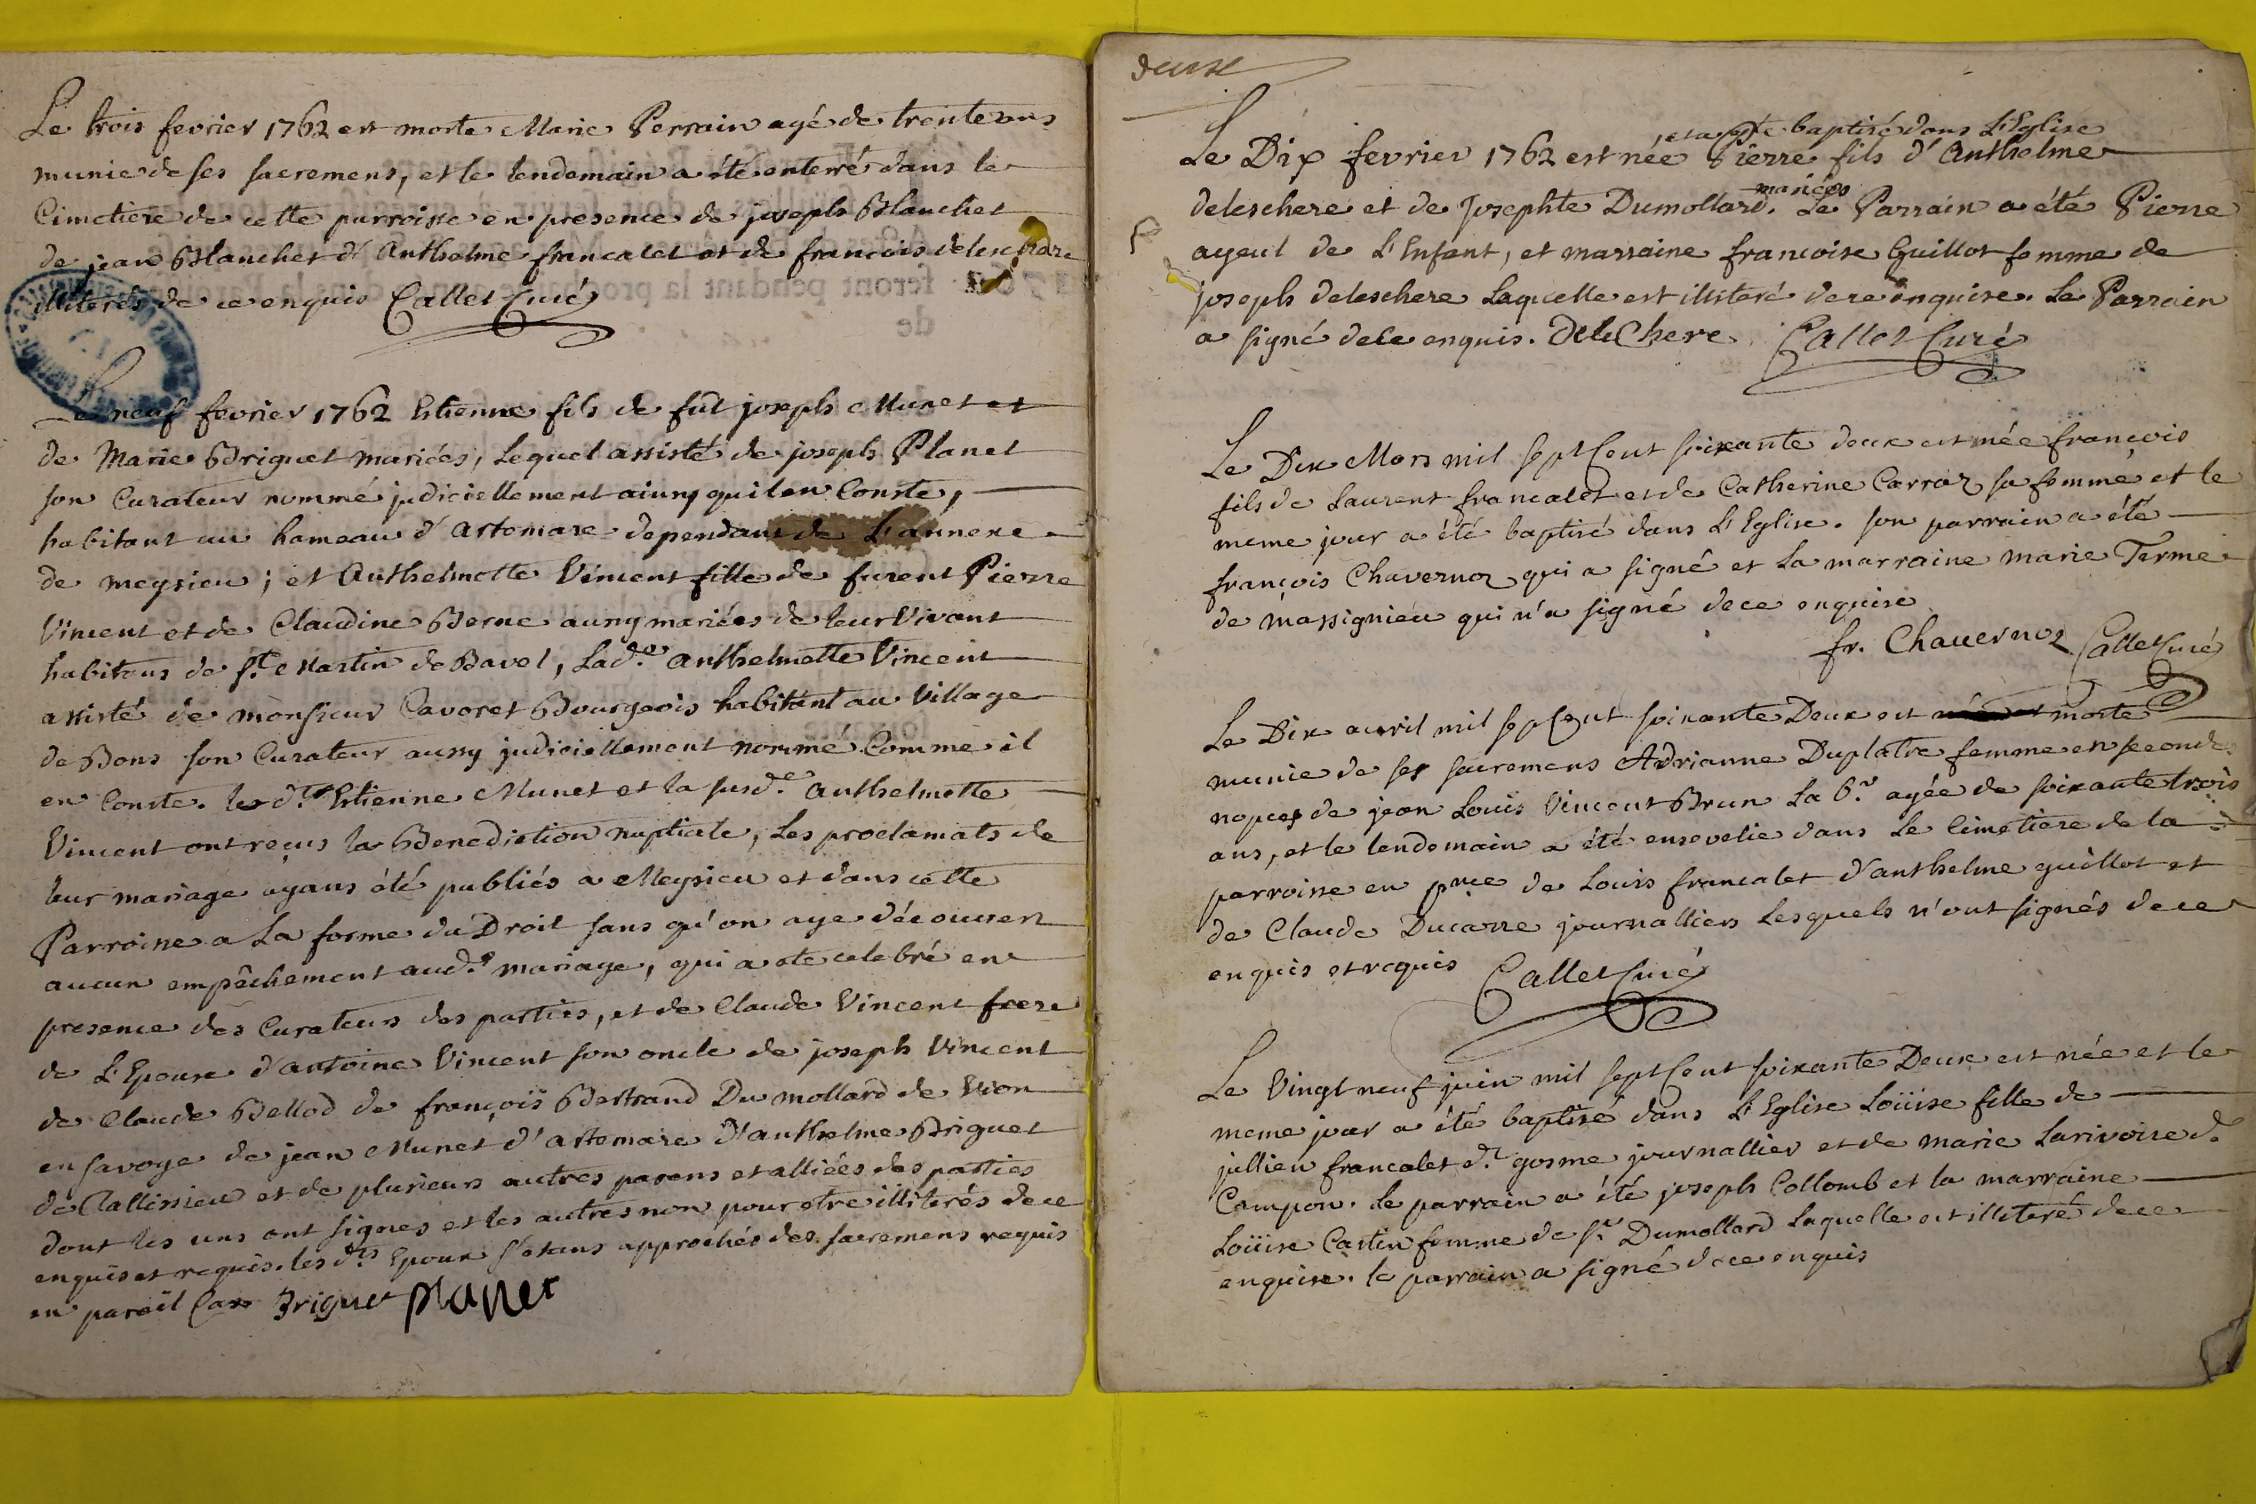 Le trois fevrier 1762 est morte Marie Perrain agé de trente ans
munie de ses sacremens, et le lendemain a été enterré dans le
Cimetiere de cette parroisse en presence de joseph Blanchet
de jean Blanchet d'Anthelme francalet et de francois deleschere
illiterés de ce enquis Callet Curé
Le neuf fevrier 1762 Estienne fils de fût joseph Munet et
de Marie Briguet mariées, Lequel assisté de joseph Planet
son Curateur nommé judiciellement ainsy quil en Conste,
habitant au hameau d'artemare dependant de L'annexe
de meysieu; et Anthelmette Vincent fille de furent Pierre
Vincent et de Claudine Berne aussy mariées de leur Vivant
habitans de St. Martin de Bavel, Lade. Anthelmette Vincent
assisté de monsieur Cavoret Bourgeois habitant au Village
de Bons son Curateur aussy judiciellement nommé Comme il
en Conste. les dts. Estienne Munet et la susde. Anthelmette
Vincent ont reçus la Benediction nuptiale, Les proclamats de
leur mariage ayans été publiés a Meysieu et dans cette
Parroisse a La forme du Droit sans qu'on aye découvert
aucun empêchement aud.t mariage, qui a ete celebré en
presence des Curateurs des parties, et de Claude Vincent frere
de L'Epouse d'antoine Vincent son oncle de joseph Vincent
de Claude Bellod de françois Bertrand Dumollard de Vion
en savoye de jean Munet d'artemare d'anthelme Briguet
de Tallissieu et de plusieurs autres parens et alliées des parties
dont les uns ont signes et les autres non pour etre illiterés de ce
enquis et requis. les dts. Epoux s'etans approchés des sacremens requis
en pareil Cas Briguet planet
deuse
et a été baptisé dans L'Eglise
Le Dix fevrier 1762 est née Pierre fils d'Anthelme
mariées
deleschere et de Josephte Dumollard. Le Parrain a été Pierre
ayeul de L'Enfant, et marraine francoise Guillot femme de
joseph deleschere Laquelle est illiteré de ce enquise. Le Parrain
a signé de ce enquis. DeleChere Callet Curé
Le Dix Mars mil sept Cent soixante deux est née françois
fils de Laurent francalet et de Catherine Carraz sa femme et le
meme jour a été baptisé dans L'Eglise. son parrain a été
françois Chavernoz qui a signé et La marraine marie Terme
de massignieu qui n'a signé de ce enquise
fr. Chauernoz Callet Curé
Le Dix auvril mil sept Cent soixante Deux est morte
munie de ses sacremens Adrianne Duplatre femme en seconde
nopces de jean Louis Vincent Brun La Ct. agée de soixante trois
ans, et le lendemain a été ensevelie dans Le Cimetiere de la
parroisse en pnce de Louis francalet d'anthelme guillot et
de Claude Ducarre journalliers Lesquels n'ont signés de ce
enquis et requis Callet Curé
Le Vingt neuf juin mil sept Cent soixante Deux est née et le
meme jour a été baptisé dans L'Eglise Loüise fille de
jullien francalet dt. gosme journallier et de marie Larivoire de
Compon. Le parrain a été joseph Collomb et la marraine
Loüise Castin femme de Sr. Dumollard Laquelle est illiteré de ce
enquise. le parrain a signé de ce enquis